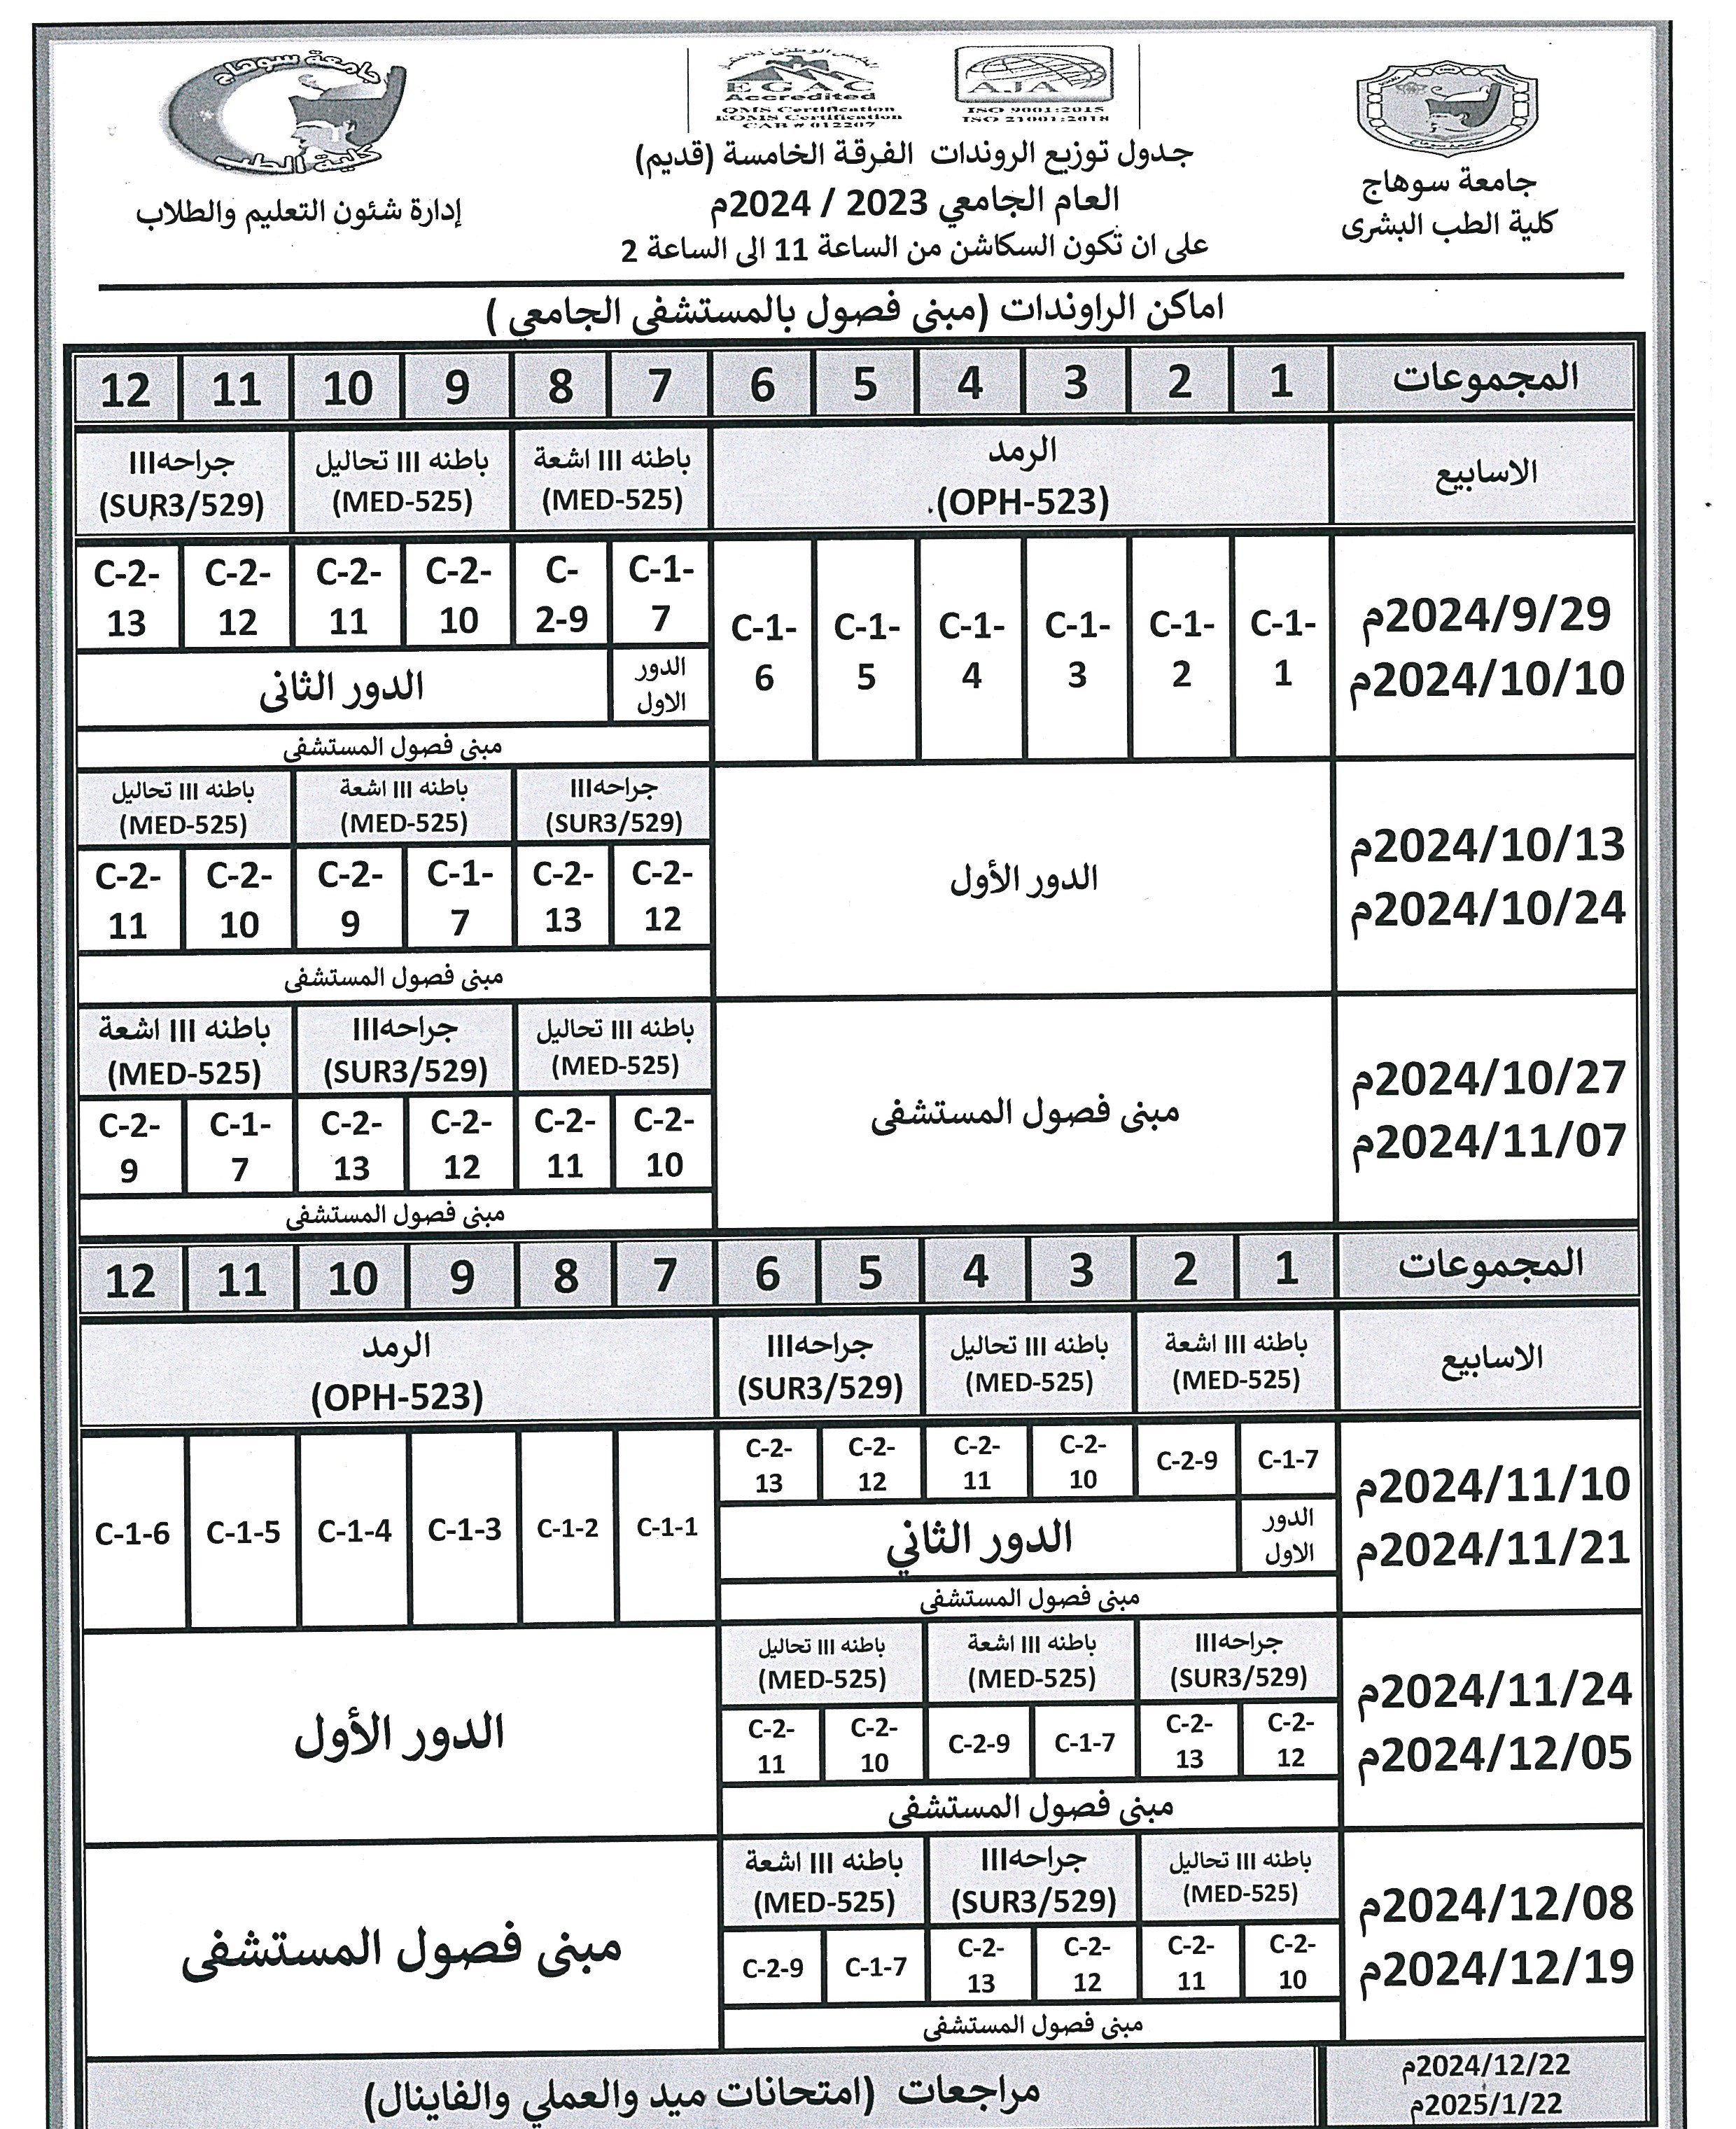 جامعة سوهاج
كلية الطب البشرى
EGAC
Accredited
QMS Certification
EOMS Certification
CAB # 012207
AJA
ISO 9001:2015
ISO 21001:2018
جامعة سوهاج
كلية الطب
إدارة شئون التعليم والطلاب
جدول توزيع الروندات الفرقة الخامسة (قديم)
العام الجامعي 2023 / 2024م
على ان تكون السكاشن من الساعة 11 الى الساعة 2
اماكن الراوندات (مبنى فصول بالمستشفى الجامعي )
المجموعات 1 2 3 4 5 6 7 8 9 10 11 12
الاسابيع
الرمد
(OPH-523).
باطنه III اشعة
(MED-525)
باطنه III تحاليل
(MED-525)
جراحهIII
(SUR3/529)
2024/9/29م
2024/10/10م
C-1-
1
C-1-
2
C-1-
3
C-1-
4
C-1-
5
C-1-
6
C-1-
7
C-
2-9
C-2-
10
C-2-
11
C-2-
12
C-2-
13
الدور
الاول
الدور الثانى
مبنى فصول المستشفى
2024/10/13م
2024/10/24م
الدور الأول
جراحهIII
(SUR3/529)
باطنه III اشعة
(MED-525)
باطنه III تحاليل
(MED-525)
C-2-
12
C-2-
13
C-1-
7
C-2-
9
C-2-
10
C-2-
11
مبنى فصول المستشفى
2024/10/27م
2024/11/07م
مبنى فصول المستشفى
باطنه III تحاليل
(MED-525)
جراحهIII
(SUR3/529)
باطنه III اشعة
(MED-525)
C-2-
10
C-2-
11
C-2-
12
C-2-
13
C-1-
7
C-2-
9
مبنى فصول المستشفى
المجموعات 1 2 3 4 5 6 7 8 9 10 11 12
الاسابيع
باطنه III اشعة
(MED-525)
باطنه III تحاليل
(MED-525)
جراحهIII
(SUR3/529)
الرمد
(OPH-523)
2024/11/10م
2024/11/21م
C-1-7
C-2-9
C-2-
10
C-2-
11
C-2-
12
C-2-
13
الدور
الاول
الدور الثاني
مبنى فصول المستشفى
C-1-1
C-1-2
C-1-3
C-1-4
C-1-5
C-1-6
2024/11/24م
2024/12/05م
جراحهIII
(SUR3/529)
باطنه III اشعة
(MED-525)
باطنه III تحاليل
(MED-525)
C-2-
12
C-2-
13
C-1-7
C-2-9
C-2-
10
C-2-
11
مبنى فصول المستشفى
الدور الأول
2024/12/08م
2024/12/19م
باطنه III تحاليل
(MED-525)
جراحهIII
(SUR3/529)
باطنه III اشعة
(MED-525)
C-2-
10
C-2-
11
C-2-
12
C-2-
13
C-1-7
C-2-9
مبنى فصول المستشفى
مبنى فصول المستشفى
2024/12/22م
2025/1/22م
مراجعات (امتحانات ميد والعملي والفاينال)